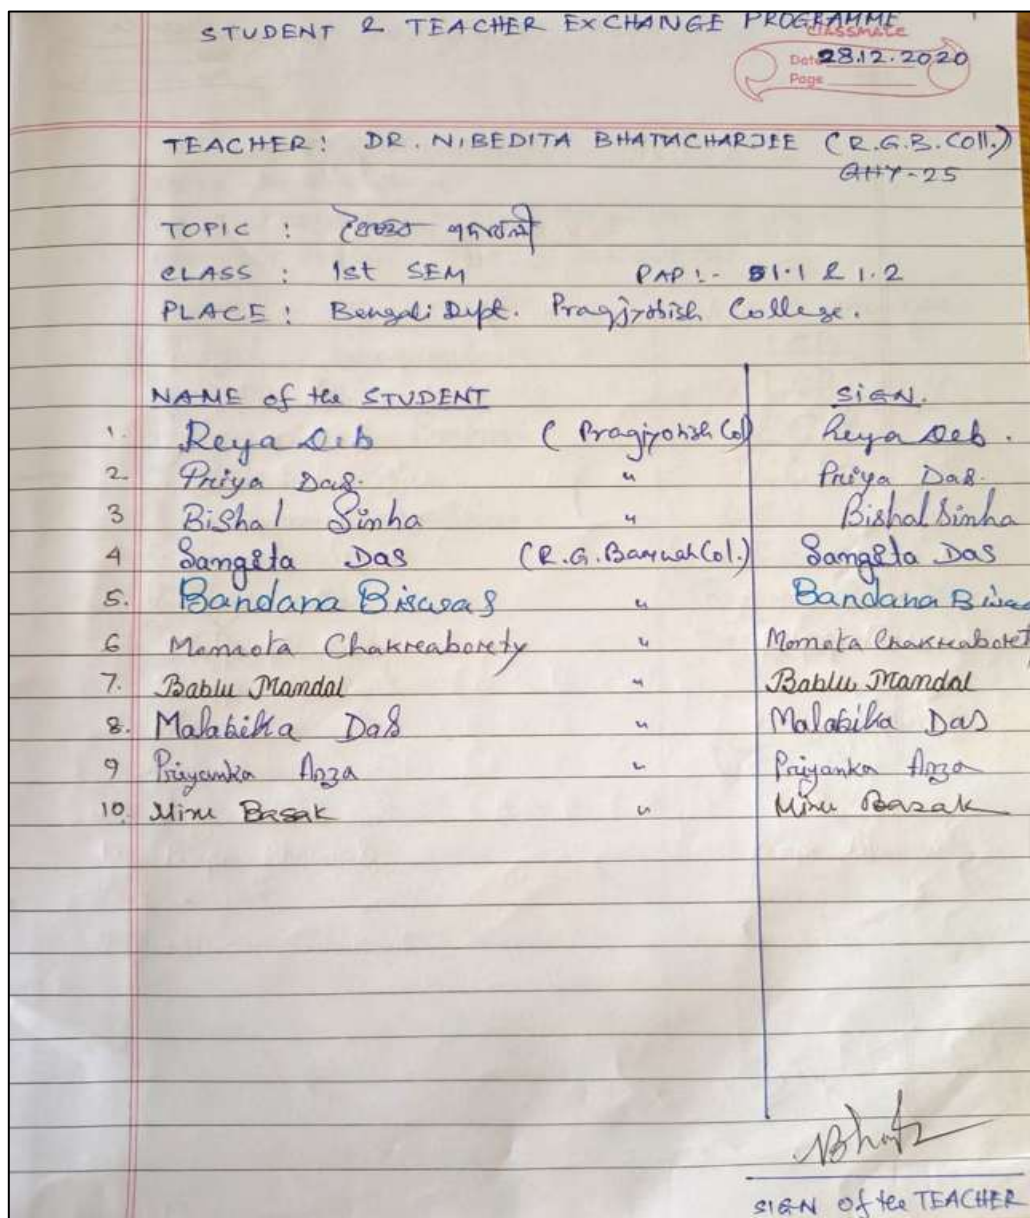 STUDENT & TEACHER EXCHANGE PROGRAMME
classmate
Date 28.12.2020
Page
TEACHER: DR. NIBEDITA BHATTACHARJEE (R.G.B. Coll.)
GHY-25
TOPIC : বৈষ্ণব পদাবলী
CLASS : 1st SEM PAP:- 1.1 & 1.2
PLACE: Bengali Dept. Pragjyotish College.
NAME of the STUDENT SIGN.
1. Reya Deb (Pragjyotish Col) Reya Deb.
2. Priya Das. " Priya Das.
3 Bishal Sinha " Bishal Sinha
4 Sangeta Das (R.G. Baruah Col.) Sangeta Das
5. Bandana Biswas " Bandana Biswas
6 Momota Chakreaborety " Momota Chakreaboret
7. Bablu Mandal " Bablu Mandal
8. Malabika Das " Malabika Das
9 Priyanka " Priyanka
10. Minu Basak " Minu Basak
SIGN of the TEACHER